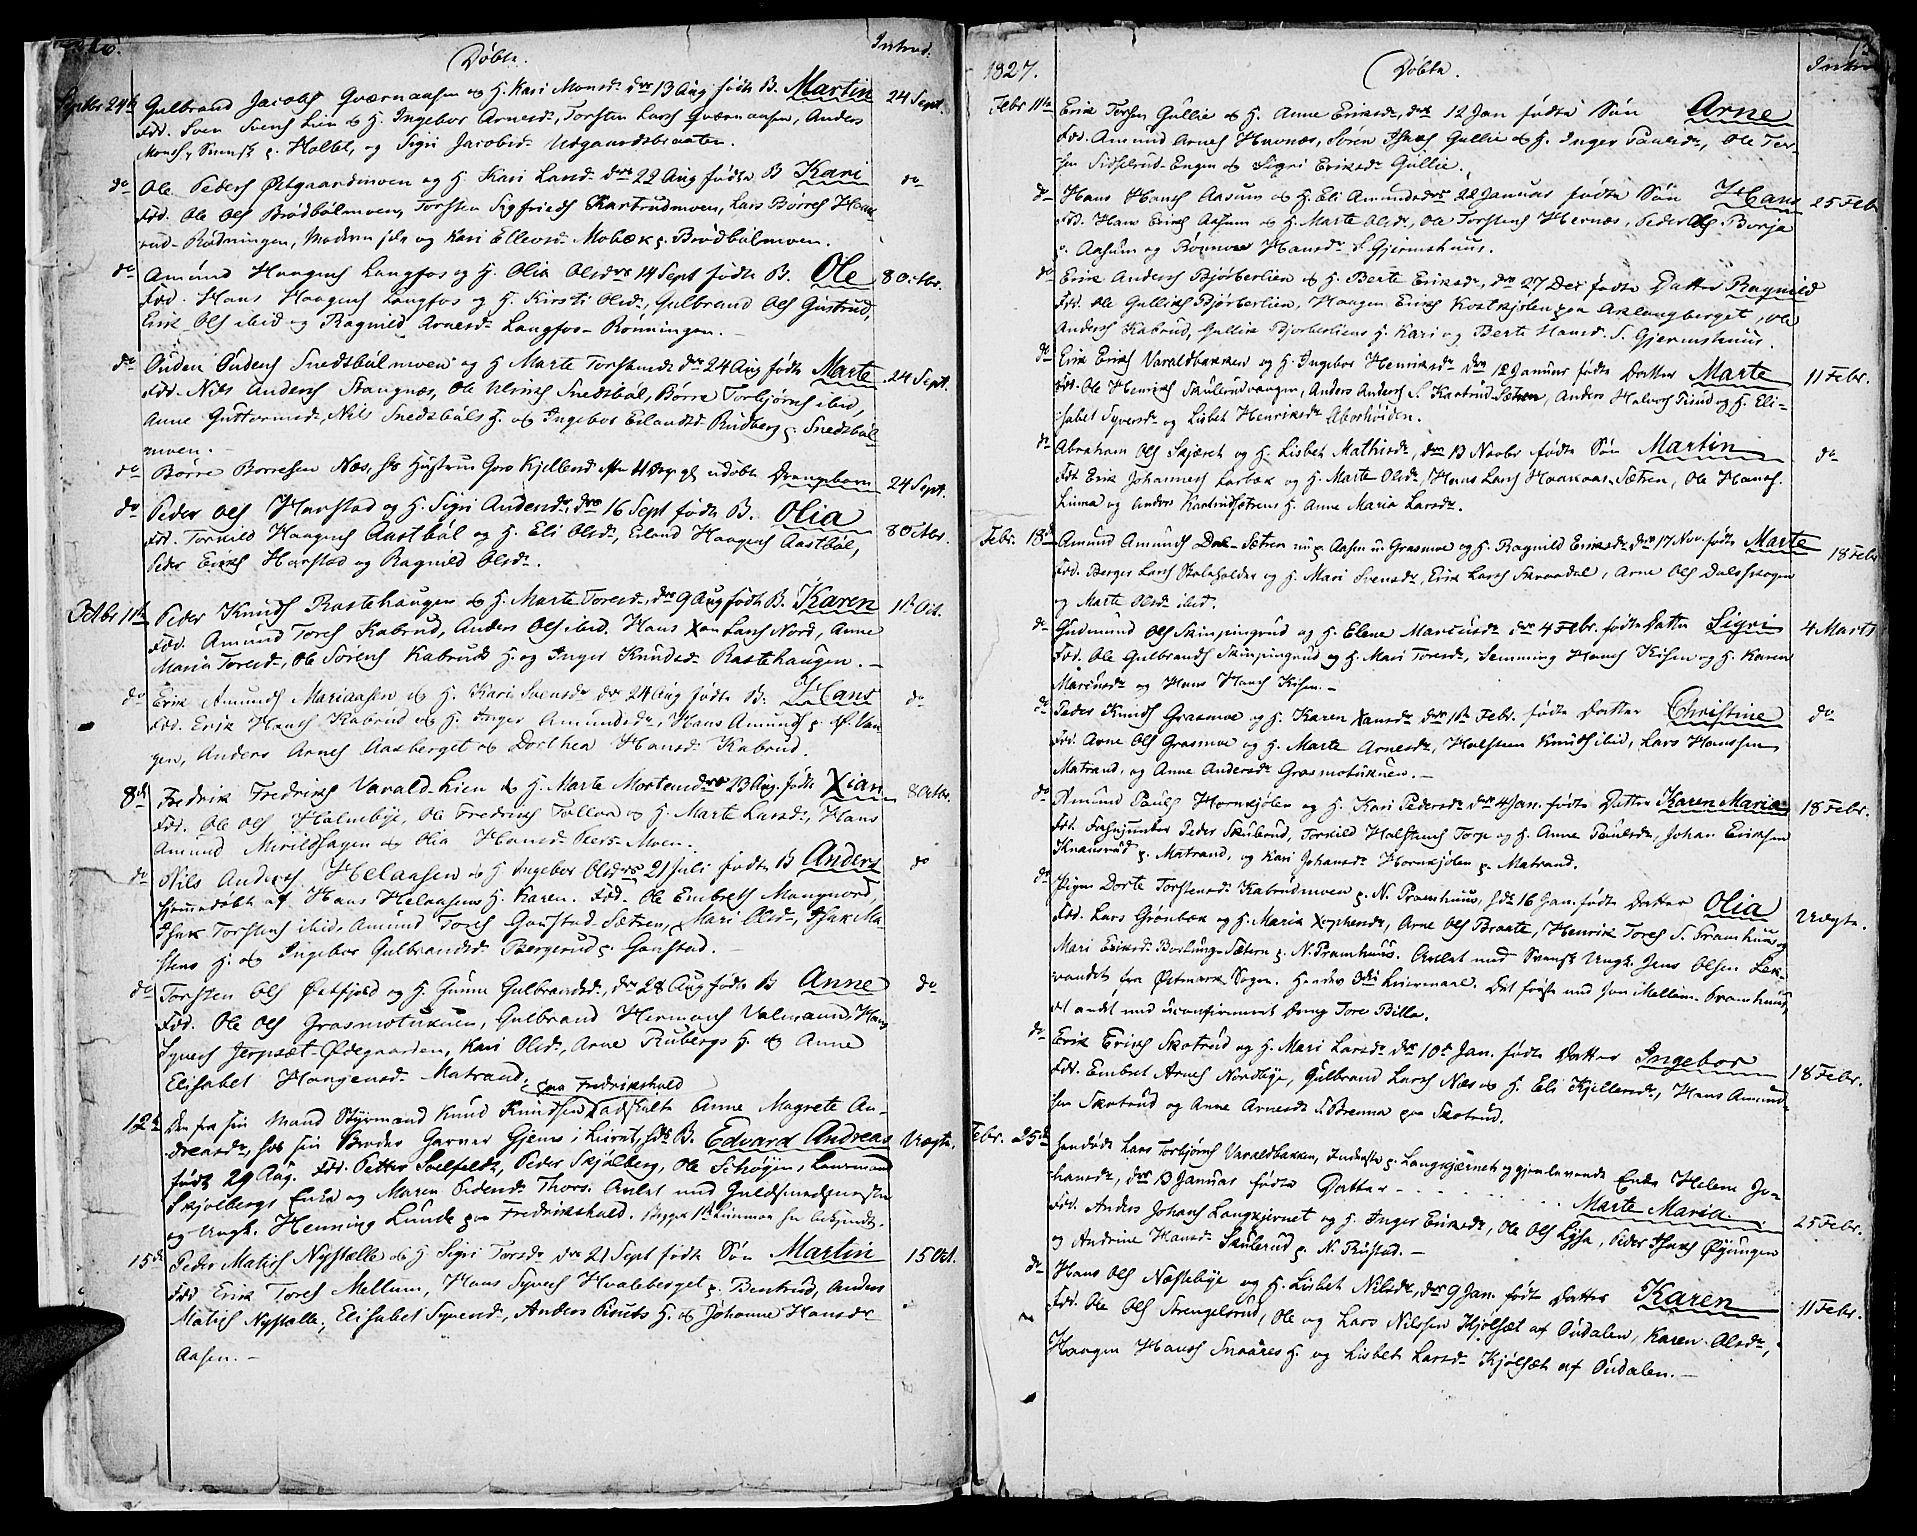 Døbte. Introd.
Septbr 24de Gulbrand Jacobs Qværnaasen og H. Kari Monsd. den 13 Aug fødte B. Martin 24 Sept.
Fdd. Sven Svens Lien og H. Ingebor Arnesd., Torsten Lars Qværnaasen, Anders
Mons, Svensk p. Holtet, og Sigri Jacobsd. Udgaardsbraaten.
do Ole Peders Østgaardmoen og H. Kari Larsd. den 22 Aug fødte B Kari do
Fdd. Ole Ols Brødbølmoen, Torsten Sigfrieds Kartrudmoen, Lars Børres
rud-Rødningen, Moderen selv og Kari Ellevsd. Mobæk p. Brødbølmoen.
do Amund Haagens Langfos og H. Olia Olsd. den 14 Sept fødte B. Ole 8 Octbr.
Fdd. Hans Haagens Langfos og H. Kirsti Olsd., Gulbrand Ols Gustrud,
Erik Ols ibid og Ragnild Arnesd. Langfos-Rønningen.
do Ouden Oudens Snedsbølmoen og H. Marte Torstensd. den 24 Aug fødte Marte 24 Sept.
Fdd. Nils Anders Stangnæs, Ole Ulriks Snedsbøl, Børre Torbjørns ibid,
Anne Guttormsd., Nils Snedsbøls H. og Ingebor Erlandsd. Rudberg p. Snedsbøl
moen.
do Børre Børresen Næs, hs Hustrue Goro Kjellsd. efter 4 Dage gl. udøbte Drengebarn 24 Sept.
do Peder Ols Harstad og H. Sigri Audensd., den 16 Sept fødte B. Olia 8 Octbr.
Fdd. Torkild Haagens Aastbøl og H. Eli Olsd., Erland Haagens Aastbøl,
Peder Eriks Harstad og Ragnild Olsd.
Octbr 1ste Peder Knuds Rastehaugen og H. Marte Toresd., den 9 Aug fødte B. Karen 1ste Oct.
Fdd. Amund Tores Kabrud, Anders Ols ibid. Hans Xan Lars Nord, Anne
Maria Toresd., Ole Sørens Kabruds H. og Inger Knudsd. Rastehaugen.
do Erik Amunds Mariaasen og H. Kari Svensd. den 24 Aug fødte B. Hans do
Fdd. Erik Hans Kabrud og H. Inger Amundsd., Hans Amunds p. Ø. Van
gen, Anders Arnes Aasberget og Dorthea Hansd. Kabrud.
8de Fredrik Fredriks Varald-Lien og H. Marte Mortensd. den 23 Aug. fødte Xian 8 Octbr.
Fdd. Ole Ols Holmebye, Ole Fredriks og H. Marte Larsd., Hans
Amund Mirildhagen og Olia Hansd. Moen.
do Nils Anders Helaasen og H. Ingebor Olsd. den 21 Juli fødte B Anders do
hjemmedøbt af Hans Helaasens H. Karen. Fdd. Ole Embrets Mangnord,
Isak Torstens ibid, Amund Tores Gonstad-Sætren, Mari Olsd., Isak Ma
stens H. og Ingebor Gulbrandsd. Bergerud p. Gonstad.
do Torsten Ols Østfjeld og H. Gunne Gulbrandsd., den 28 Aug fødte B Anne do
Fdd. Ole Ols Grasmotukuen, Gulbrand Hermans Valmoen, Hans
Syvers Jerpsæt-Ødegaarden, Kari Olsd., Arne Rubergs H. og Anne
Elisabet Haagensd. Matrand.
12te Den fra sin Mand Styrmand Knud Knudsen paa Fredrikshald adskilte Anne Magrete An-
dreasd., hos sin Broder Garver Gjems i Leiret, hds B. Edvard Andreas Uægte.
født 29 Aug. Fdd. Petter Solfeldt, Peder Skjølberg, Ole Schøyen, Lensmand
Skjølbergs Enke og Maren Pedersd. Thors. Avlet med Guldsmedmester
og Ungk. Henning Lunde paa Fredrikshald.
15de Peder Matis Nystølle og H. Sigri Torsd. den 21 Sept fødte Søn Martin 15 Oct.
Fdd Erik Tores Mellum, Hans Syvers Hvaleberget p. Bentrud, Anders
Matis Nystølle, Elisabet Syversd., Anders Pruts H. og Johanne Hansdr
Aasen.
1827. Døbte. Introd
Febr 11te Erik Torsen Gullie og H. Anne Eriksd., den 12 Jan fødte Søn Arne
Fdd. Amund Arnes Huvnæs, Søren Isaks Gullie og H. Inger Paulsd., Ole Tor-
sen Sidselrud-Engen og Sigri Eriksd. Gullie.
do Hans Hans Aasum og H. Eli Amundsd. den 22 Januar fødte Søn Hans 25 Feb
Fdd. Hans Eriks Aasum og H. Marte Olsd., Ole Torstens Hernæs, Peder Ols Borja
p. Aasum og Rønnoe Hansd. S. Gjermshuus.
do Erik Anders Bjørberlien og H. Berte Eriksd., den 27 Dec fødte Datter Ragnild
Fdd. Ole Gulliks Bjørberlien, Haagen Eriks Kostkjølen paa Aklangberget, Ole
Anders Kabrud, Gullik Bjorberliens H. Kari og Berte Hansd. S. Gjermshuus.
do Erik Eriks Varaldbakken og H. Ingebor Henriksd. den 12 Januar fødte Datter Marte 11 Febr.
Fdd. Ole Henriks Skulerudvangen, Anders Anders S. Kartrud-Sætren, Anders Halvors Frud og H. Eli-
sabet Syversd. og Lisbet Henriksd. Aborhøiden.
do Abraham Ols Skjæret og H. Lisbet Mathisd., den 13 Novbr fødte Søn Martin do
Fdd Erik Johannes Lorbæk og H. Marte Olsd., Hans Lars Haakaas-Sætren, Ole Hans
Linna og Anders Kartrudsætrens H. Anne Maria Larsd.
Febr. 18de Amund Amunds Dal-Sætren nu p. Aasen u. Grasmoe og H. Ragnild Eriksd. den 17 Nov. fødte Marte 18 Febr
Fdd. Berger Lars Skoleholder og H. Mari Svensd., Erik Lars Skraadal, Arne Ols Dalsskogen
og Marte Olsd. ibid.
do Gudmund Ols Skinpingrud og H. Elene Marcusd. den 4 Febr. fødte Datter Sigri 4 Marts
Fdd. Ole Gulbrands Skinpingrud og H. Mari Toresd., Semming Hans Kisen og H. Karen
Marcusd. og Hans Hans Kisen.
do Peder Knuds Grasmoe og H. Karen Xansd. den 1ste Febr. fødte Datter Christine do
Fdd. Arne Ols Grasmoe og H. Marte Arnesd., Halsteen Knuds ibid, Lars Hanssen
Matrand, og Anne Andersd. Grasmotukuen.
do Amund Pauls Hornkjølen og H. Kari Pedersd. den 4 Jan. fødte Datter Karen Maria 18 Febr.
Fdd. Fahnjunker Peder Skubrud, Torkild Halstens Torp og H. Anne Paulsd., Johan Eriksen
Knausrud p. Matrand, og Kari Johansd. Hornkjølen p. Matrand.
do Pigen Dorte Torstensd. Kabrudmoen p. N. Pramhuus, hds 16 Jan. fødte Datter Olia Uægte.
Fdd. Lars Grønbæk og H. Maria Xophersd., Arne Ols Braate, Henrik Tores S. Pramhuus og
Mari Eriksd. Borlung-Sætern p. N. Pramhuus. Avlet med Svensk Ungk. Jens Olsen Lek-
vandet fra Østmark Sogn. Hendes 3die Leiermaal. Det første med Jon Mellem-Pramhuus,
et andet med uconfirmeret Dreng Tore Billa.
do Erik Eriks Skotrud og H. Mari Larsd. den 10de Jan. fødte Datter Ingebor 18 Febr.
Fdd. Embret Arnes Nordbye, Gulbrand Lars Næs og H. Eli Kjellersd., Hans Amund-
sen Skotrud og Anne Arnesd. S. Brenna paa Skotrud.
Febr. 25de Hendøde Lars Torbjørns Varaldbakken, Inderste p. Langkjærnet og gjenlevende Enke Helene Jo-
hansd., den 13 Januar fødte Datter - - - - - - - Marte Maria. 25 Febr.
Fdd. Anders Johans Langkjernet og H. Inger Eriksd., Ole Ols Lysa, Peder Isaks Øyungen
og Andrine Hansd. Skulerud p. N. Rustad.
do Hans Ols Næstebye og H. Lisbet Nilsd., den 9 Jan. fødte Datter Karen 11 Febr.
Fdd. Ole Ols Strengelsrud, Ole og Lars Nilssen Kjølsæt af Oudalen, Karen Olsd.,
Haagen Hans Snaares H. og Lisbet Larsd. Kjølsæt af Oudalen.